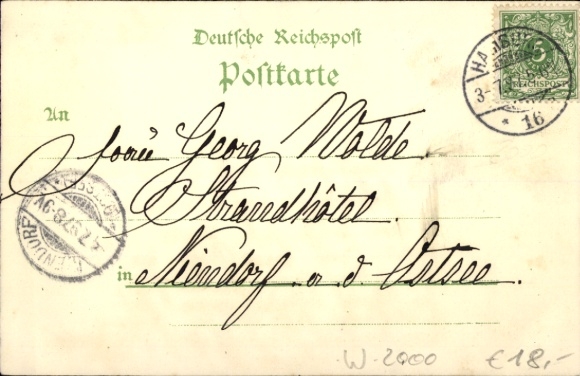 Deutsche Reichspost
Postkarte
An
Frau Georg Wolde.
Strandhôtel.
in Niendorf a. d. Ostsee.
5
REICHSPOST
HAMBURG
* 16
NIENDORF
4.7.97.8-9V.
W-2000
€18,-